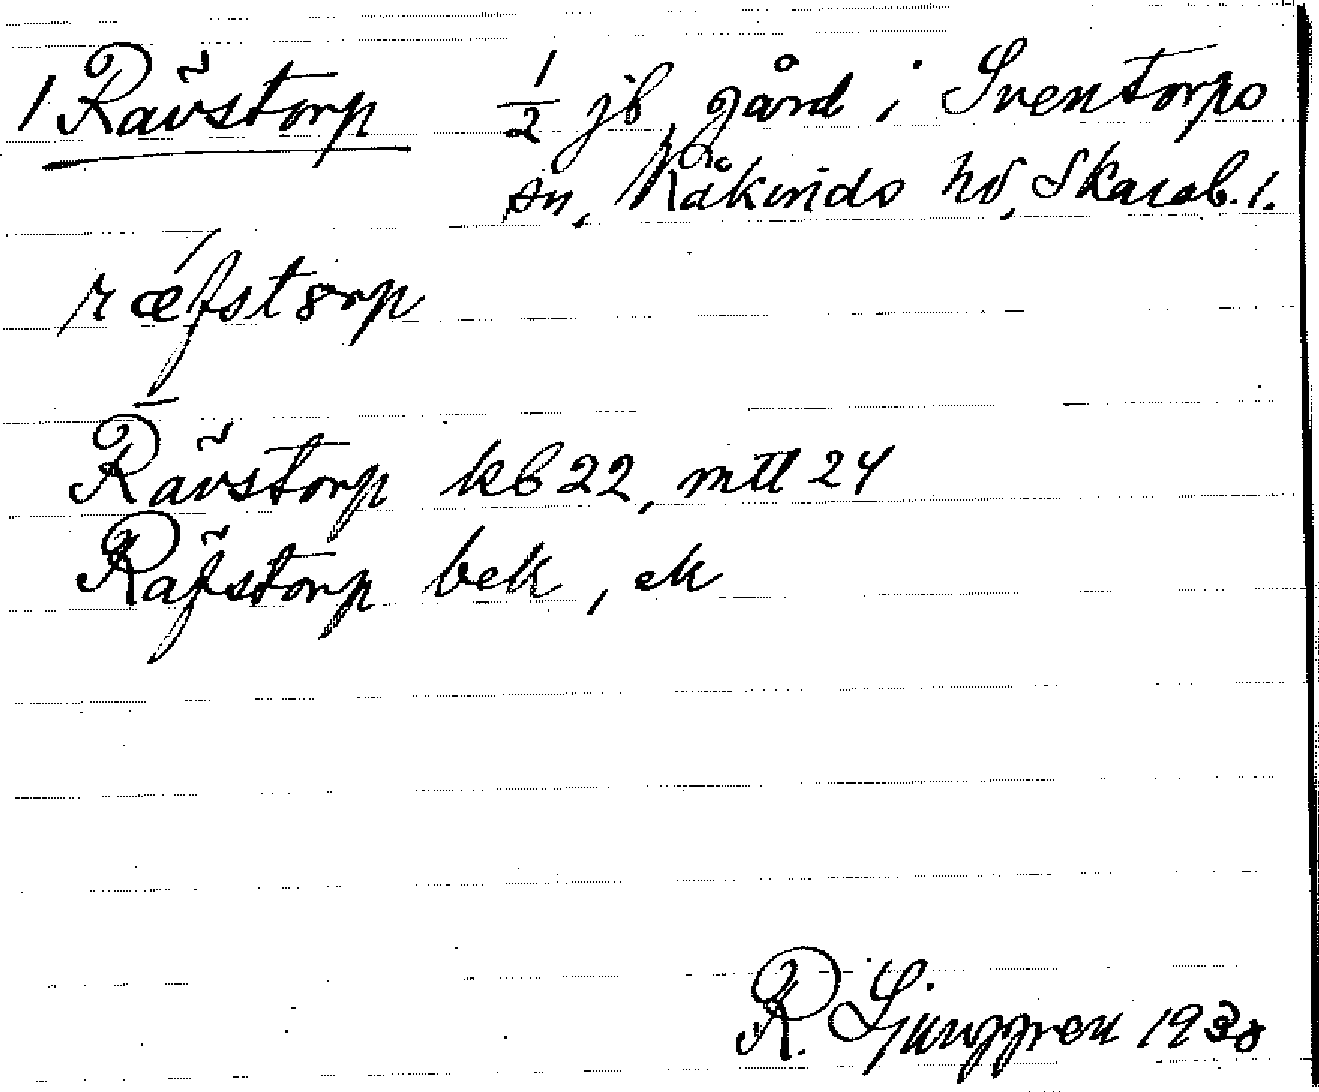 1 Rävstorp 1/2 jb, gård i Sventorps
sn, Kåkinds hd, Skarab. l.
ræ´fstørp
Rävstorp kb 22, mtl 24
Räfstorp bek, ek
R. Ljunggren 1930